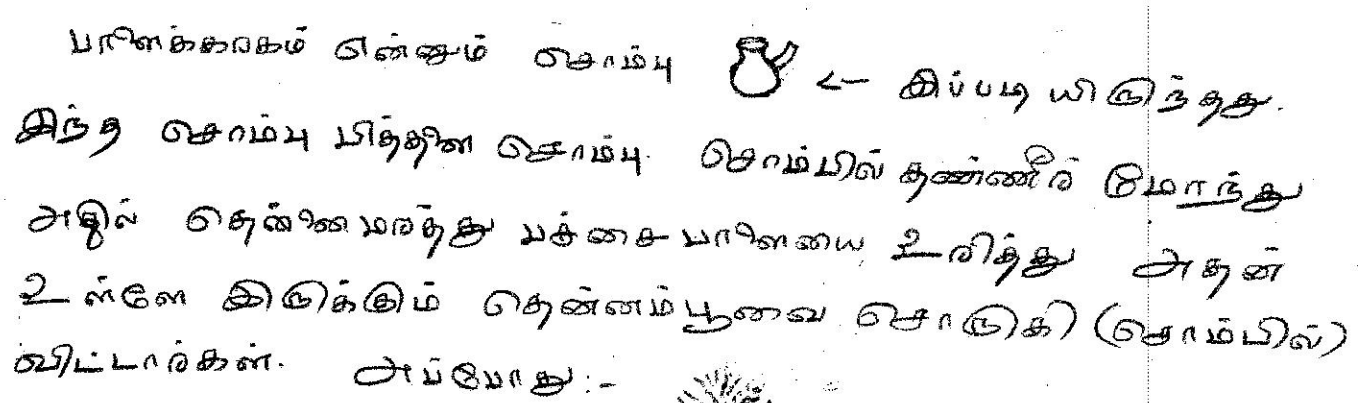 பாளைக்கரகம் என்னும் சொம்பு ← இப்படி யிருந்தது.
இந்த சொம்பு பித்தளை சொம்பு. சொம்பில் தண்ணீர் மோந்து
அதில் தென்னைமரத்து பச்சை பாளையை உரித்து அதன்
உள்ளே இருக்கும் தென்னம்பூவை சொருகி (சொம்பில்)
விட்டார்கள். அப்போது:-